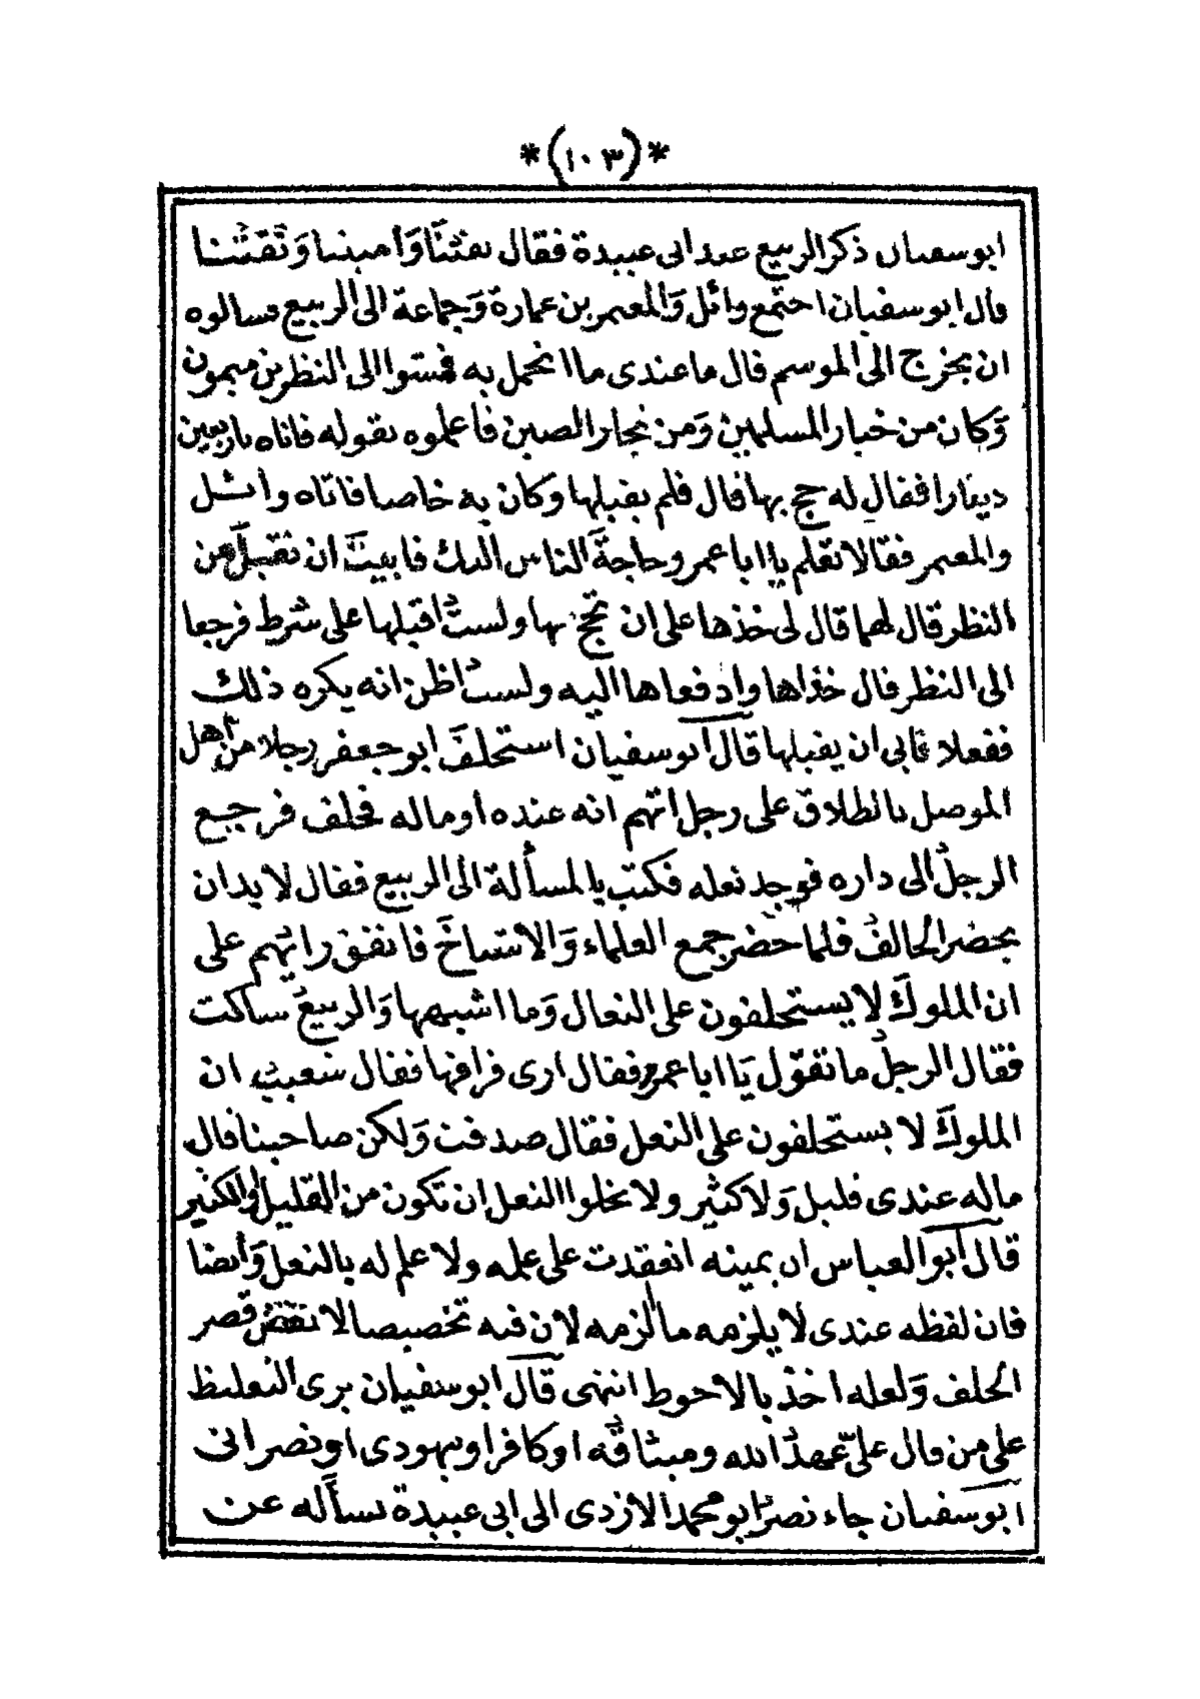 *(١٠٣)*
ابو سفيان ذكر الربيع عند ابى عبيدة فقال تقيّنا وَأميننا وَثقتنا
قال ابو سفيان اجتمع وائل وَالمعمر بن عمارة وَجماعة الى الربيع فسالوه
ان يخرج الى الموسم فقال ما عندى ما اتحمل به فمشوا الى النظر بن ميمون
وَكان من خيار المسلمين وَمن تجار الصين فاعلموه بقوله فاتاه باربعين
دينارا فقال له حج بها قال فلم يقبلها وَكان به خاصا فاتاه وائل
والمعمر فقالا تعلم يا ابا عمرو حاجةَ الناس اليك فابيت ان تقبل من
النظر قال لهما قال لى خذها على ان تحج بها ولستُ اقبلها على شرط فرجعا
الى النظر قال خذاها وادفعاها اليه ولست اظن انه يكره ذلك
ففعلا فابى ان يقبلها قال ابو سفيان استحلف ابو جعفر رجلا من اهل
الموصل بالطلاق على رجل اتهم انه عنده او ماله فحلف فرجع
الرجلُ الى داره فوجد نعله فكتب بالمسألة الى الربيع فقال لا بد ان
يحضر الحالفُ فلما حضر جمع العلماء وَالاشياخَ فاتفق رايهم على
ان الملوكَ لا يستحلفون على النعال وَما اشبهها وَالربيعُ ساكت
فقال الرجلُ ما تقول يَا ابا عمرو فقال ارى فراقها فقال شعيب ان
الملوكَ لا يستحلفون على النعل فقال صدقت وَلكن صاحبنا قال
ماله عندى قليل وَلا كثير ولا يخلوا النعل ان تكون من القليل او الكثير
قال ابو العباس ان يمينه انعقدت على علمه ولا علم له بالنعل وَأيضا
فان لفظه عندى لا يلزمه ما ألزمه لان فيه تخصيصا لا نقض قصر
الحلف وَلعله اخذ بالاحوط انتهى قال ابو سفيان يرى التغليظ
على من قال علىّ عهدُ الله وميثاقُه او كافر او يهودى او نصرانى
ابو سفيان جاء نصرُ ابو محمد الازدى الى ابى عبيدة يسأله عن